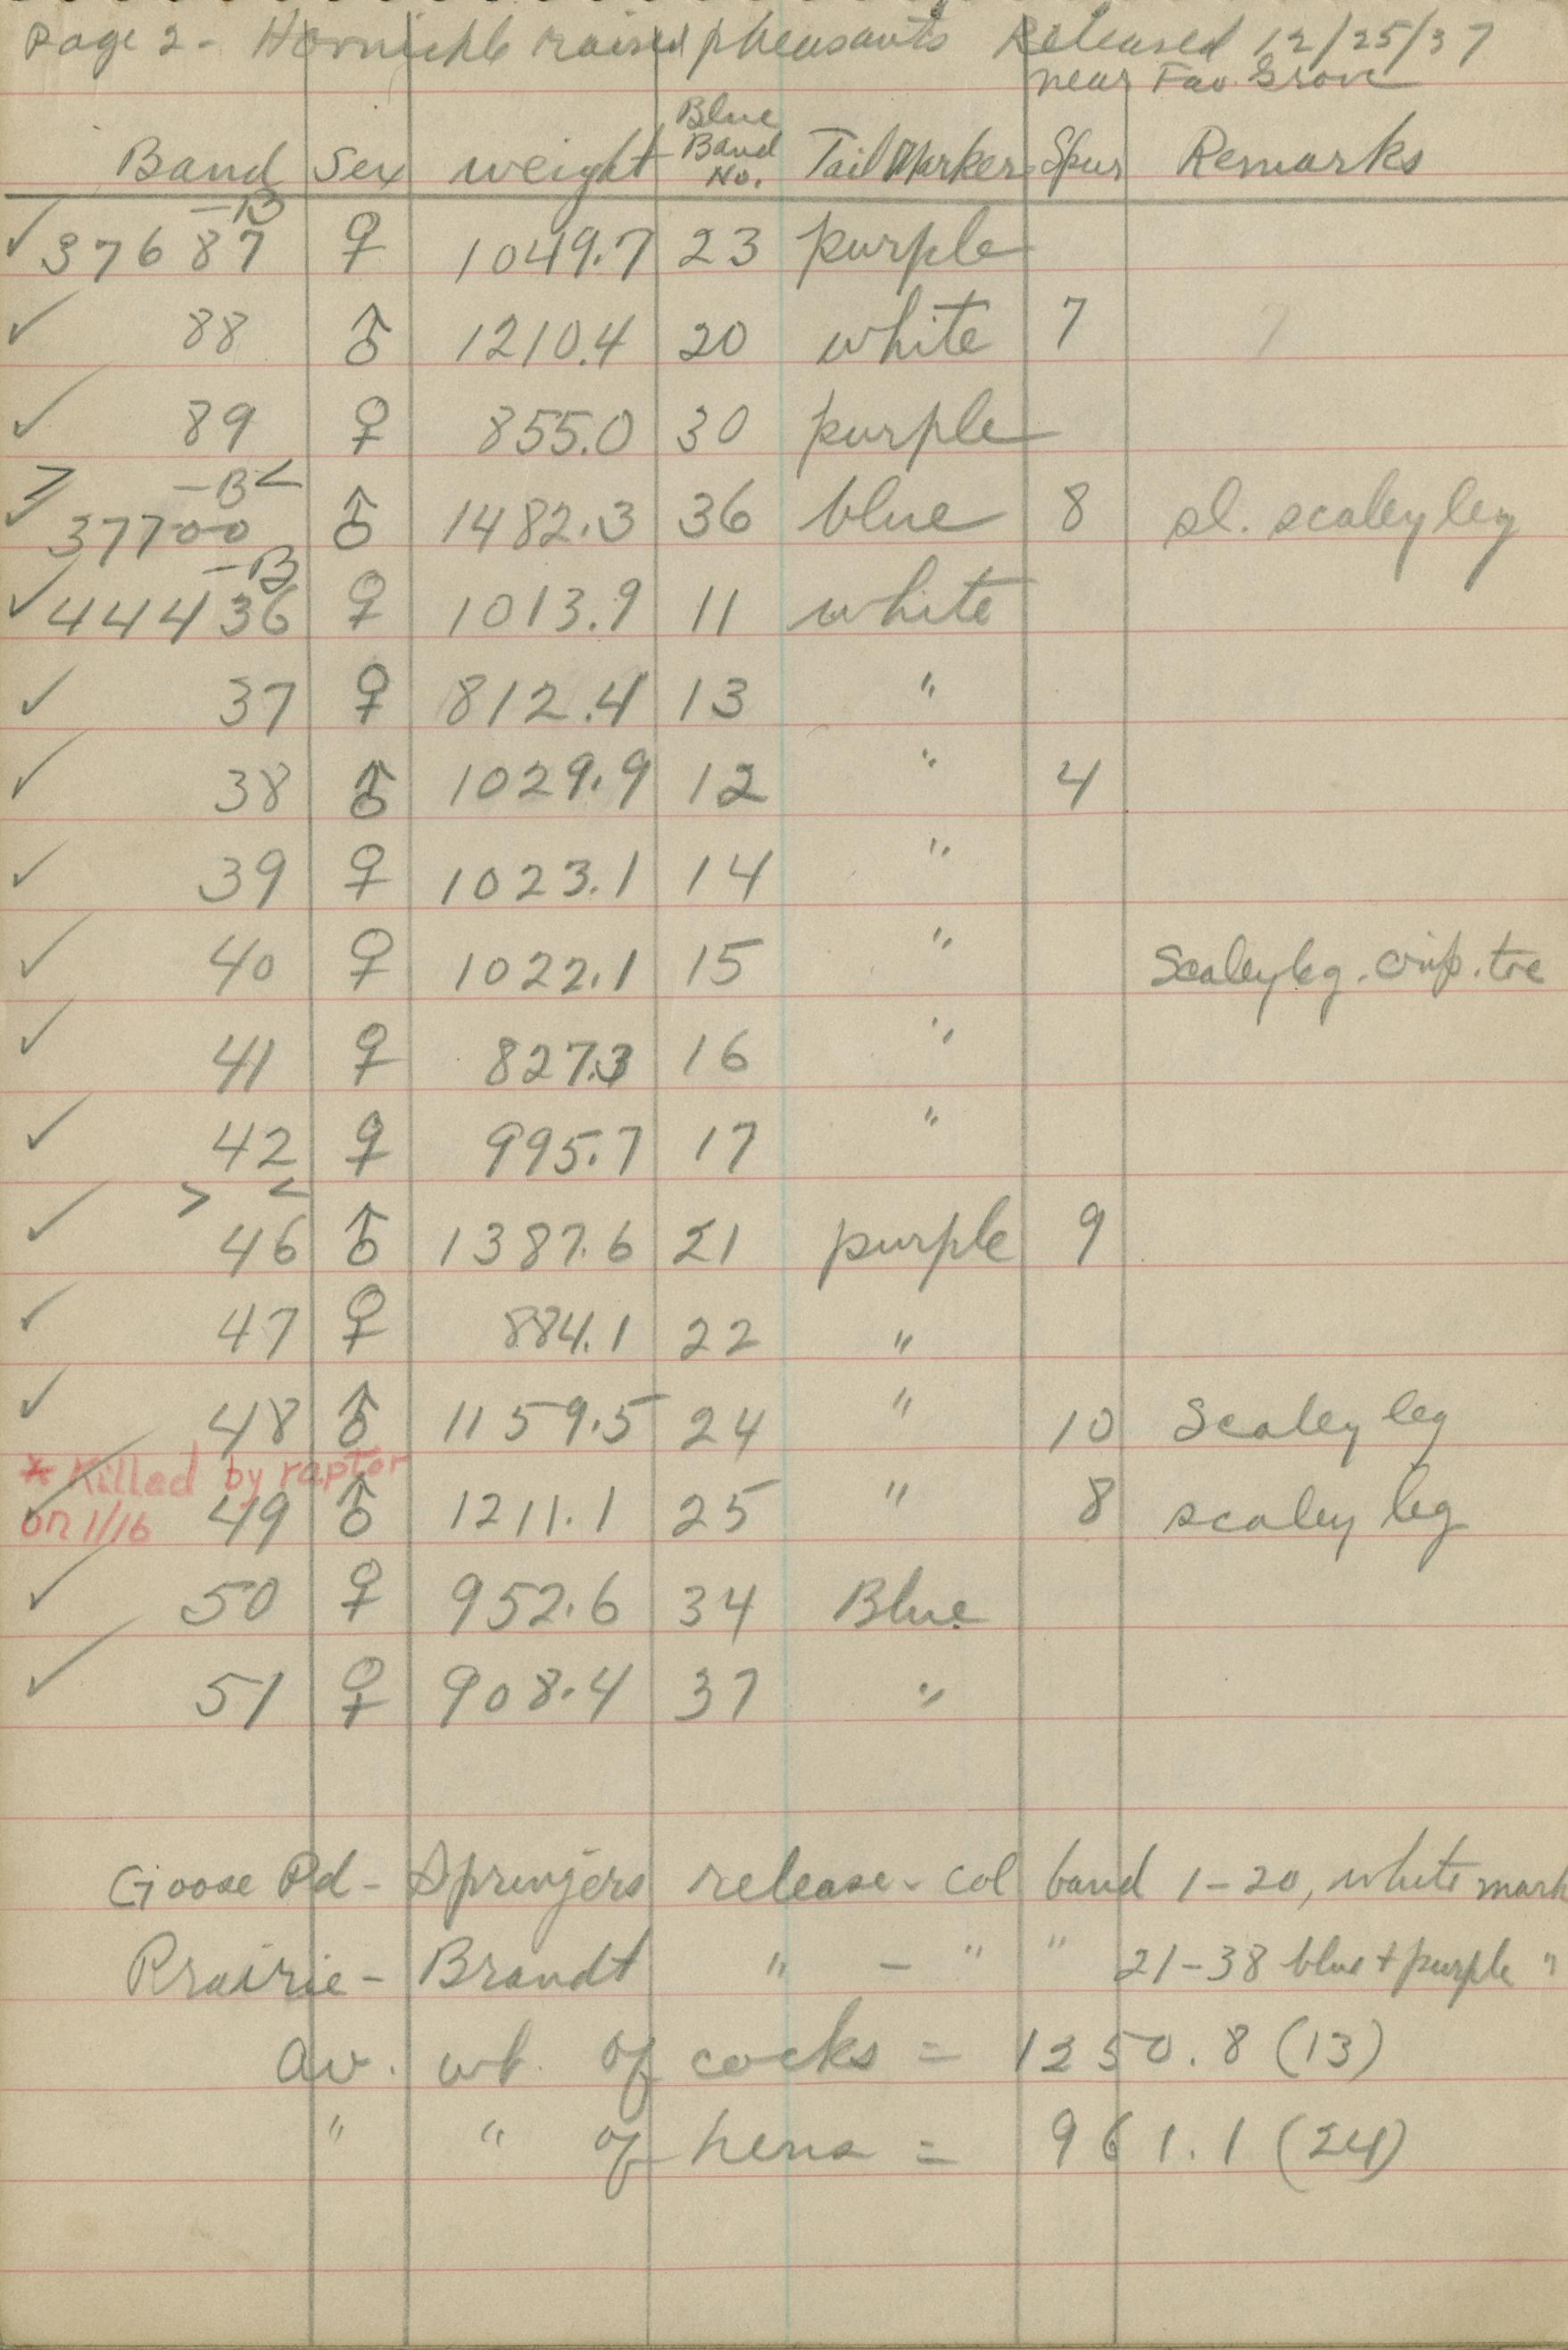 Page 2 - raised pheasants Released 12/25/37
near Fav. Grove
Band Sex weight Blue Band No. Tail Marker Spur Remarks
✓ 37687-B ♀ 1049.7 23 purple
✓ 88 ♂ 1210.4 20 white 7 7
✓ 89 ♀ 855.0 30 purple
> -B <
✓ 37700 ♂ 1482.3 36 blue 8 sl. scaley leg
-B
✓ 44436 ♀ 1013.9 11 white
✓ 37 ♀ 812.4 13 "
✓ 38 ♂ 1029.9 12 " 4
✓ 39 ♀ 1023.1 14 "
✓ 40 ♀ 1022.1 15 " Scaley leg. toe
✓ 41 ♀ 827.3 16 "
✓ 42 ♀ 995.7 17 "
> <
✓ 46 ♂ 1387.6 21 purple 9
✓ 47 ♀ 884.1 22 "
✓ 48 ♂ 1159.5 24 " 10 Scaley leg
* Killed by raptor
on 1/16
✓ 49 ♂ 1211.1 25 " 8 scaley leg
✓ 50 ♀ 952.6 34 Blue
✓ 51 ♀ 908.4 37 "
Goose Pd - Springers release - col band 1-20, white mark
Prairie - Brandt " - " " 21-38 blue + purple "
av. wt. of cocks = 1250.8 (13)
" " of hens = 961.1 (24)